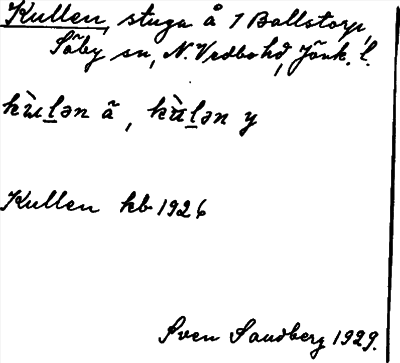 Kullen, stuga å 1 Ballstorp,
Säby sn, N. Vedbo hd, Jönk. l.
kùḻən ã, kùḻən y
Kullen kb 1926
Sven Sandberg 1929.